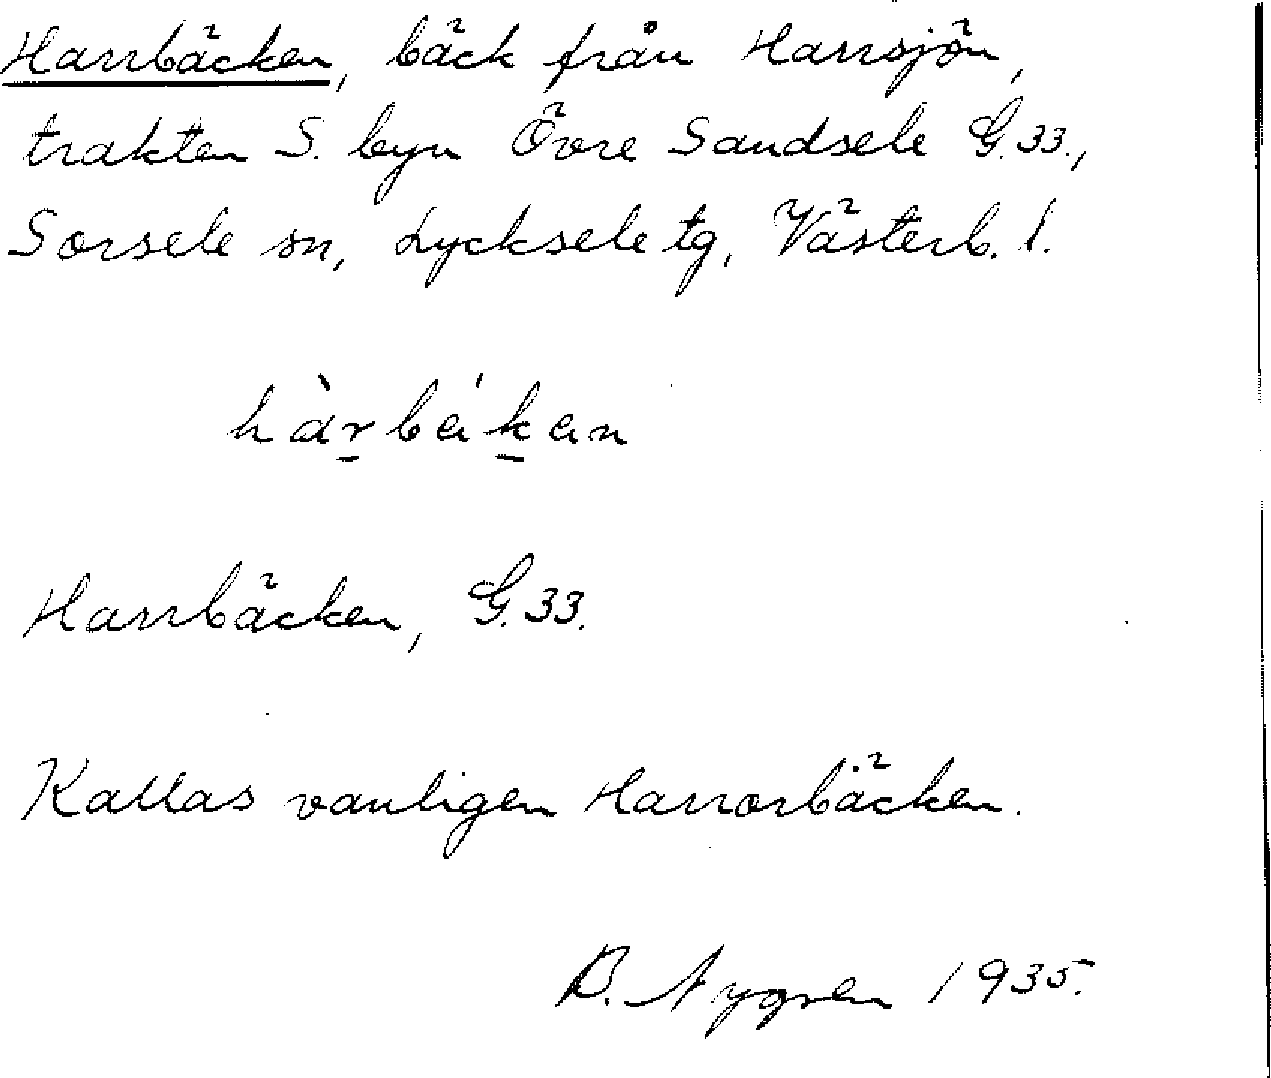 Harrbäcken, bäck från Harrsjön,
trakten S. byn Övre Sandsele G.33.,
Sorsele sn, Lycksele tg, Västerb. l.
hàrbä́kän
Harrbäcken, G.33.
Kallas vanligen Harrorbäcken.
B. Nygren 1935.